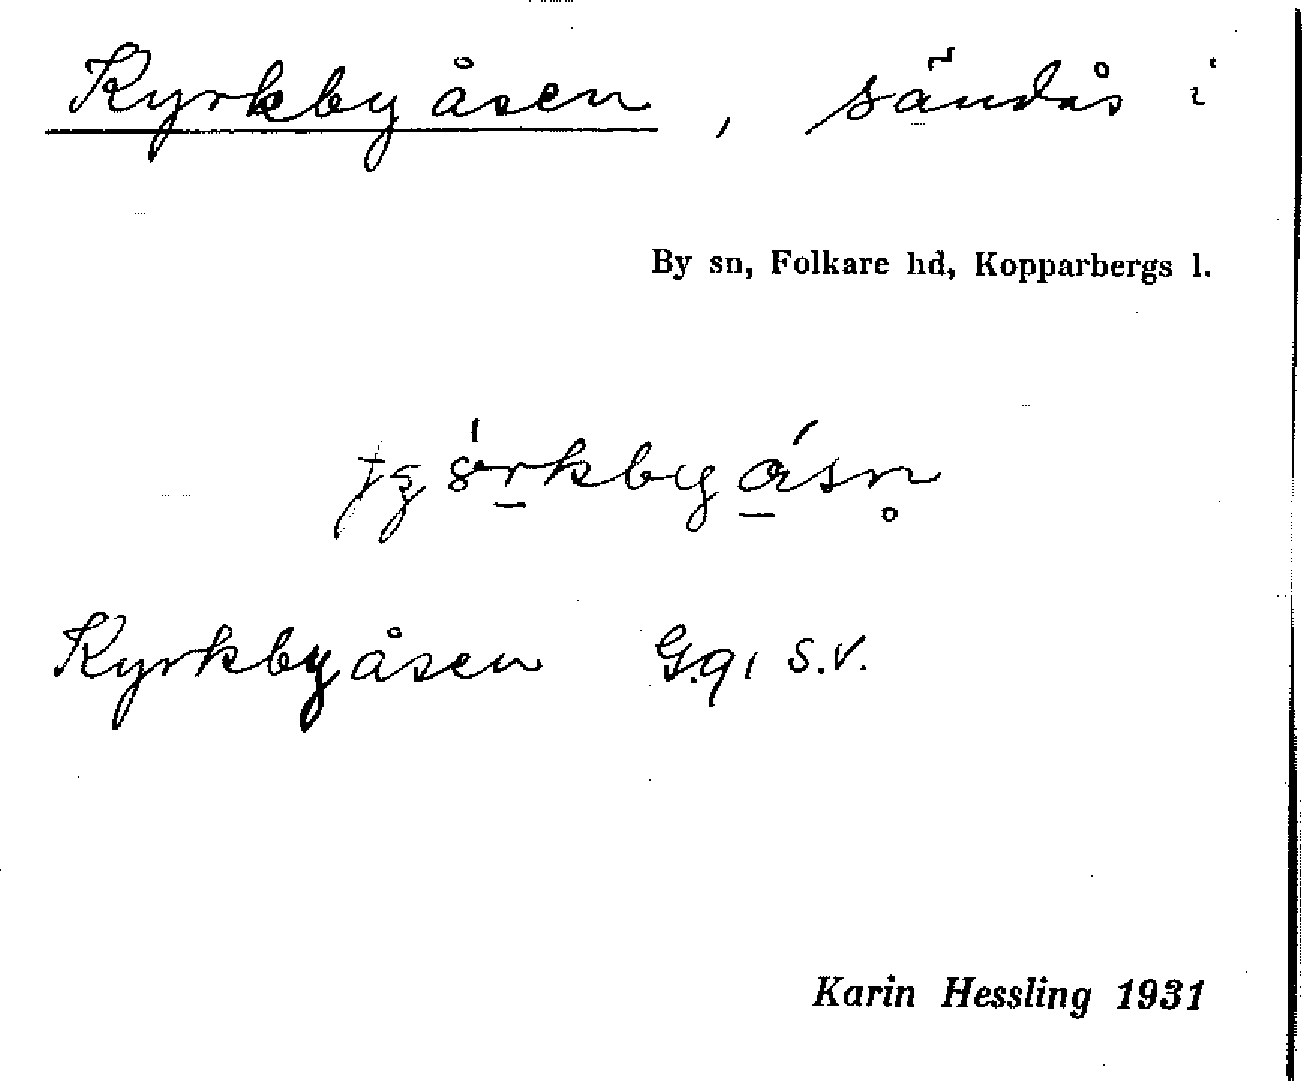 Kyrkbyåsen, sandås i
By sn, Folkare hd, Kopparbergs l.
Kyrkbyåsen G.91 S.V.
Karin Hessling 1931